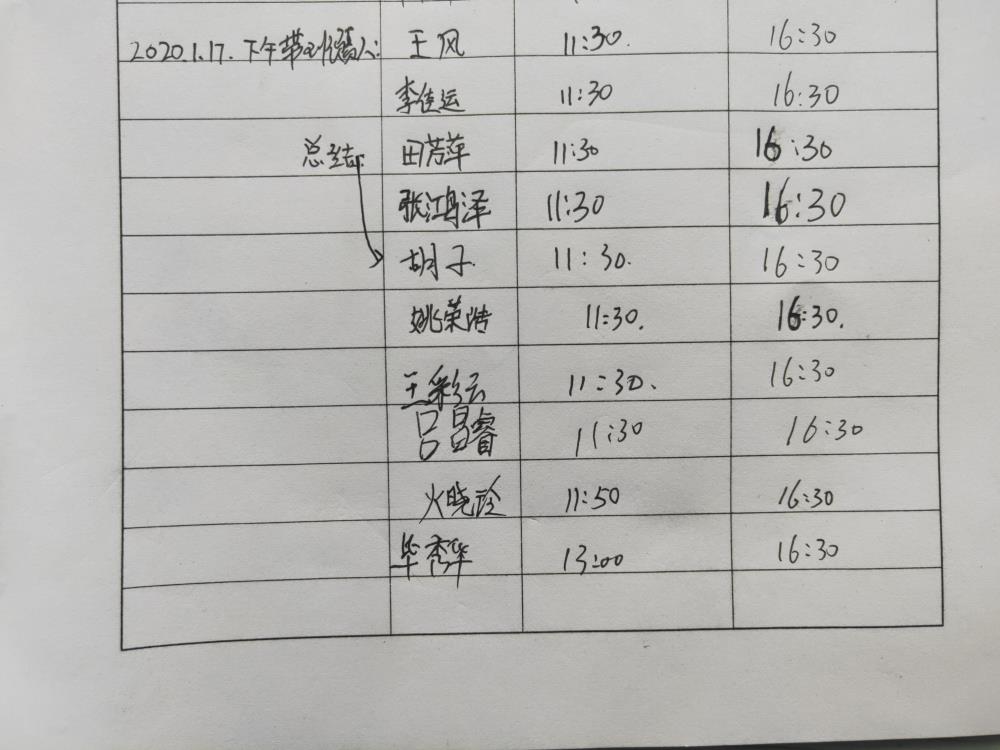 2020.1.17. 下午带班人: 王风 11:30. 16:30
李佳运 11:30 16:30
总结: 田芳萍 11:30 16:30
张鸿泽 11:30 16:30
胡子 11:30. 16:30
姚荣浩 11:30. 16:30.
王彩云 11:30. 16:30
吕昌睿 11:30 16:30
火晓玲 11:50 16:30
毕秀华 13:00 16:30